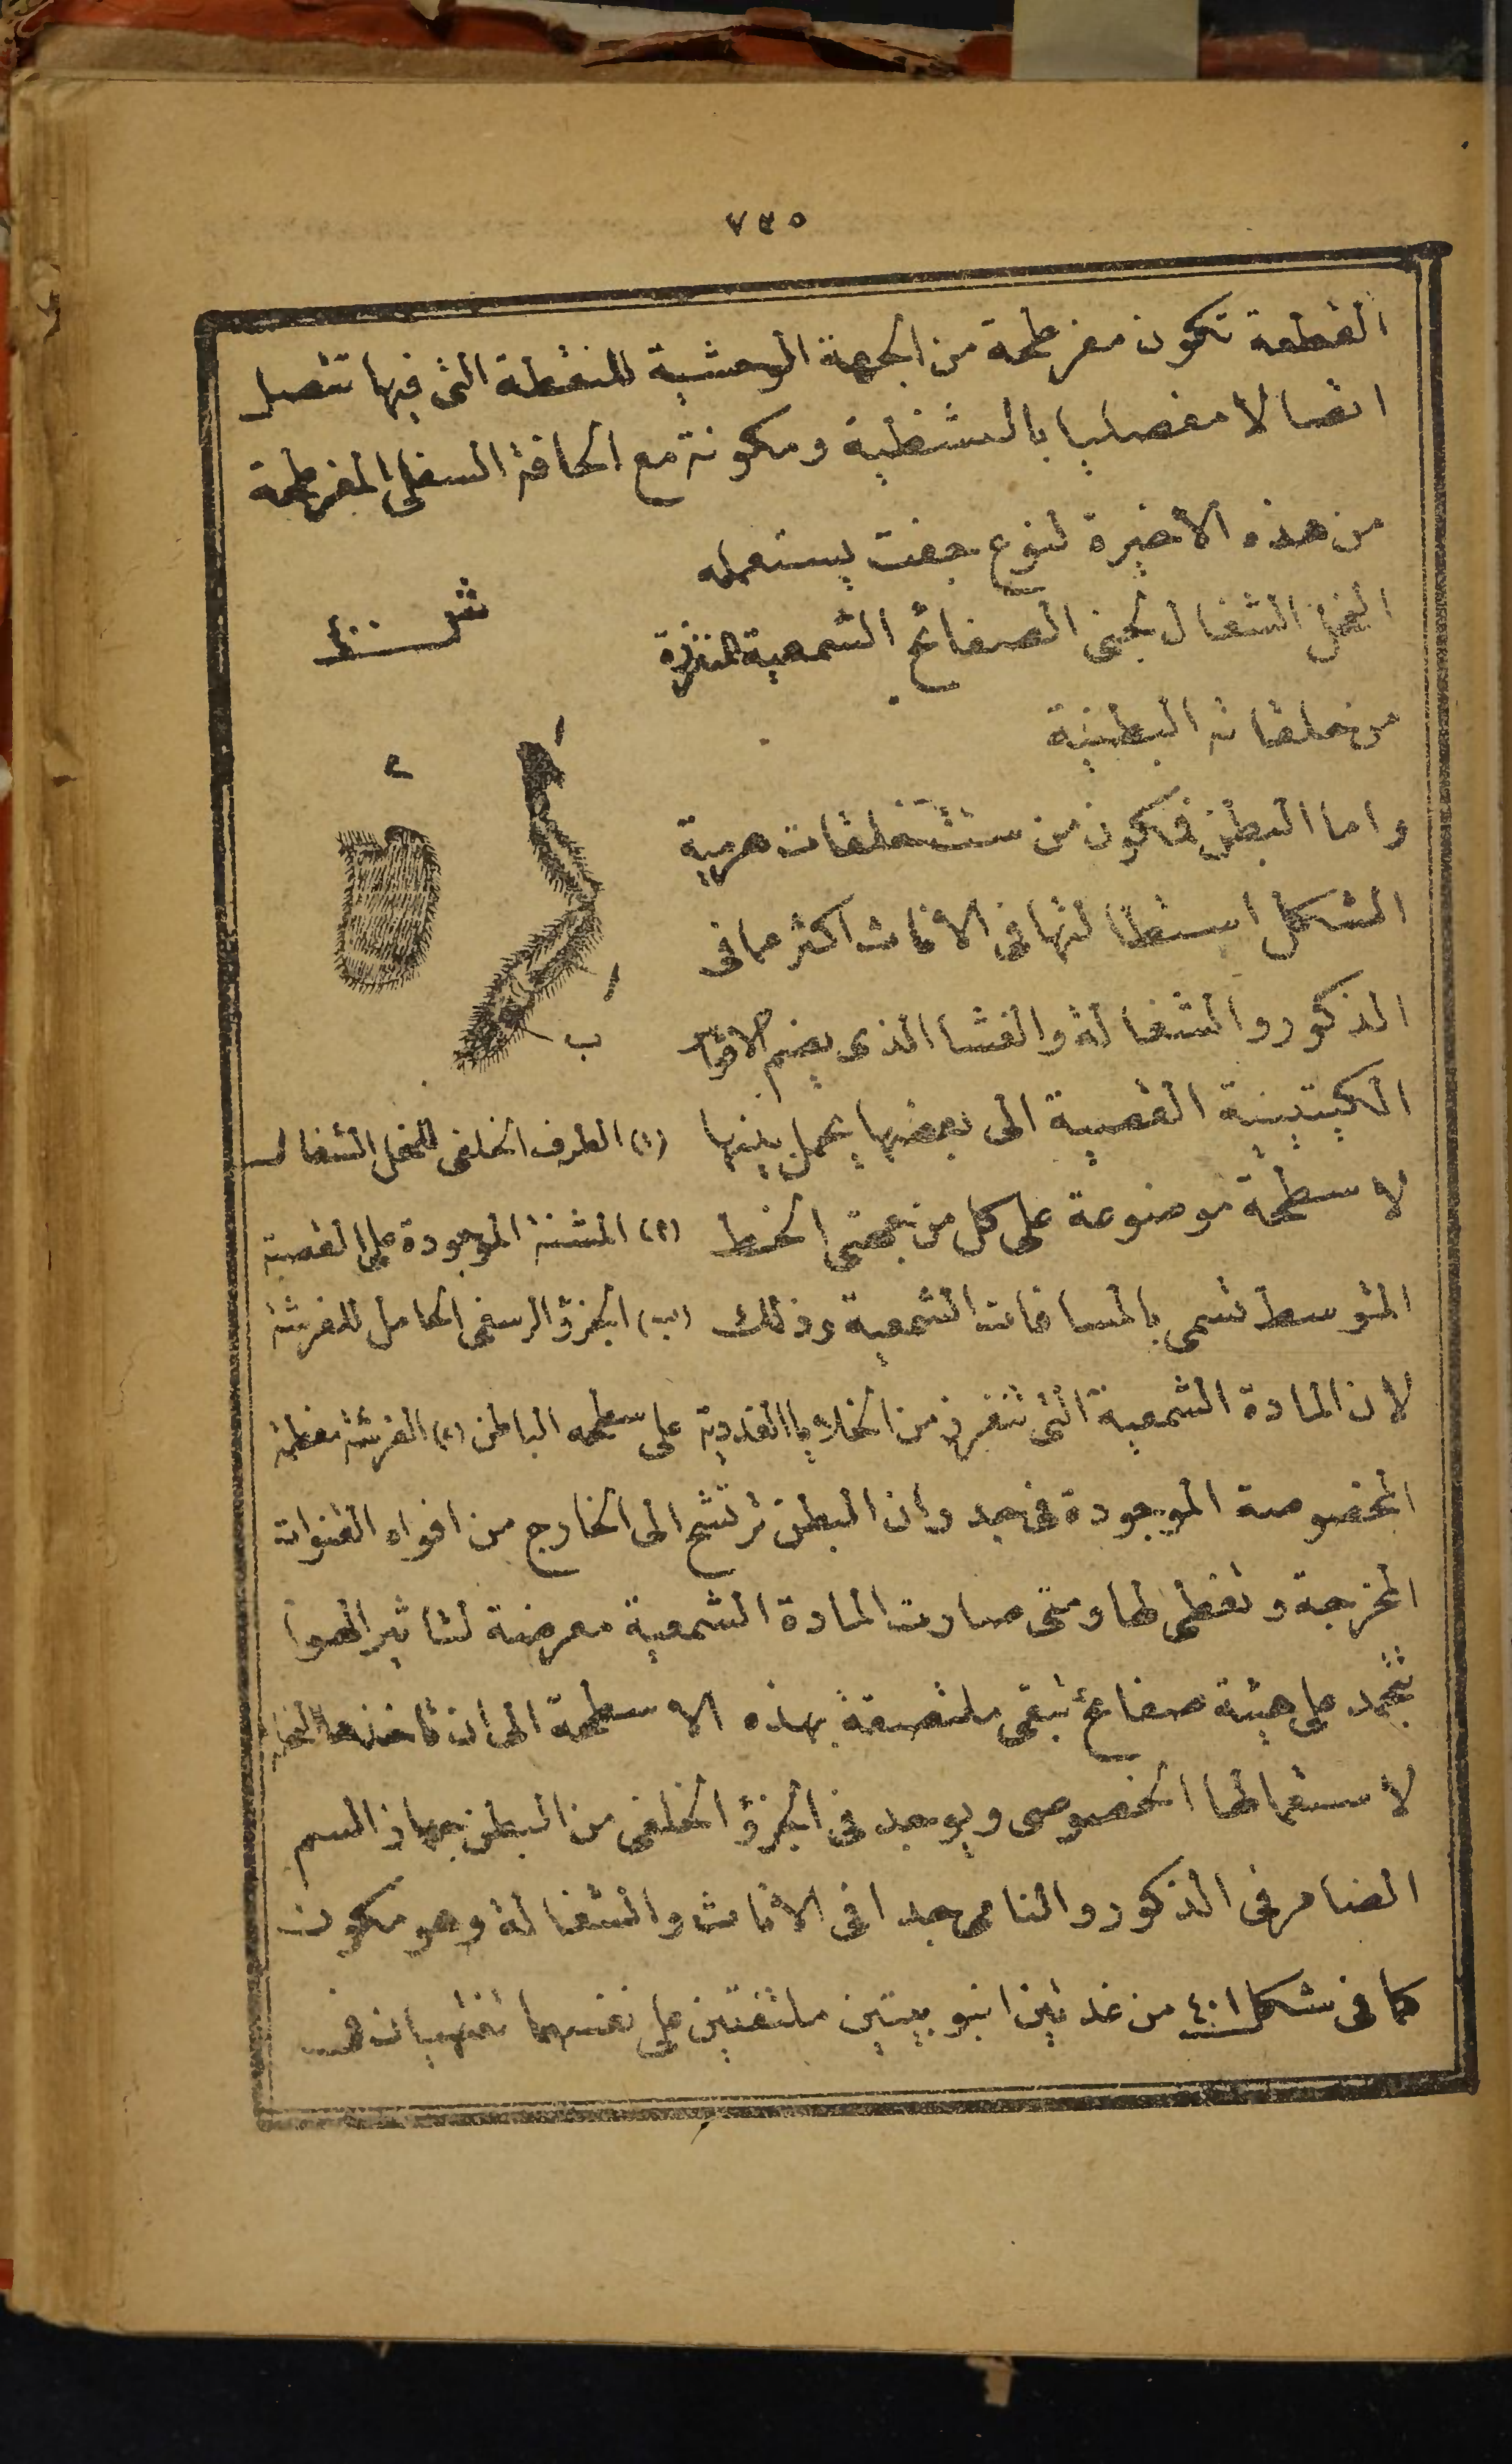 ٧٣٥
القطعة تكون مفرطحة من الجهة الوحشية للنقطة التى فيها تتصل
اتصالا مفصليا بالشظية ومكونة مع الحافة السفلى المفرطحة
من هذه الاخيرة لنوع جفت يستعمله
النحل الشغال لجنى الصفائح الشمعية المفرزة
من حلقاته البطنية
ش ٤٠٠
١
٢
١
ب
واما البطن فتكون من ست حلقات هرمية
الشكل استطالتها فى الاناث اكثر مما فى
الذكور والشغالة والغشا الذى يضم الاقواس
الكيتينية القصبية الى بعضها يحمل بينها
(١) الطرف الخلفى للنحل الشغال
لاسطحة موضوعة على كل من جهتى الخط
(٢) المشنة الموجودة على القصبة
المتوسط تسمى بالمسافات الشمعية وذلك
(ب) الجزؤ الرسغى الحامل للفرشة
لان المادة الشمعية التى تنفرز من الخلايا الغددية
على سطحه الباطن (٢) الفرشة مغطية
المخصوصة الموجودة فى جدران البطن ترتشح الى الخارج من افواه القنوات
المخرجة وتغطى لها ومتى صارت المادة الشمعية معرضة لتاثير الهوا
تتجمد على هيئة صفائح تبقى ملتصقة بهذه الاسطحة الى ان تاخذها النحل
لاستعمالها الخصوصى ويوجد فى الجزؤ الخلفى من البطن جهاز السم
الضامر فى الذكور والنامى جدا فى الاناث والشغالة وهو مكون
كما فى شكل ٤٠١ من غدتين انبوبيتين ملتفتين على نفسهما تنتهيان فى